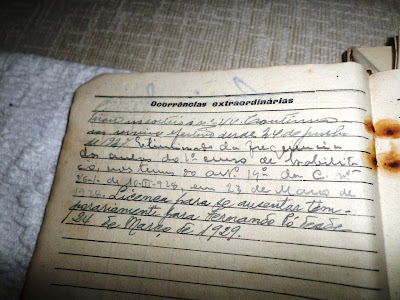 Ocorrências extraordinárias
nº 44. Continua
no serviço efectivo desde 24 de Junho
de Eliminado da frequencia
das aulas do 1º curso de habilita-
ção, nos termos do artº 14º da C. nº
de 10-III-926, em 23 de Março de
1926. Licença para se ausentar tem-
porariamente para Fernando Pó desde
24 de Março de 1929.